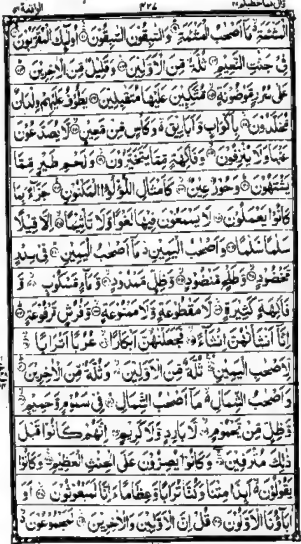 قال فما خطبكم ٢٧ ٤٢٧ الواقعة ٥٦
الْمَشْـَٔمَةِ ۙ مَاۤ اَصْحٰبُ الْمَشْـَٔمَةِ ؕ وَالسّٰبِقُوْنَ السّٰبِقُوْنَ ۙ اُولٰٓئِكَ الْمُقَرَّبُوْنَ ۚ
فِیْ جَنّٰتِ النَّعِیْمِ ۞ ثُلَّةٌ مِّنَ الْاَوَّلِیْنَ ۙ وَقَلِیْلٌ مِّنَ الْاٰخِرِیْنَ ؕ
عَلٰی سُرُرٍ مَّوْضُوْنَةٍ ۙ مُّتَّكِـِٕیْنَ عَلَیْهَا مُتَقٰبِلِیْنَ ۞ یَطُوْفُ عَلَیْهِمْ وِلْدَانٌ
مُّخَلَّدُوْنَ ۙ بِاَكْوَابٍ وَّاَبَارِیْقَ ۙ وَكَاْسٍ مِّنْ مَّعِیْنٍ ۙ لَّا یُصَدَّعُوْنَ
عَنْهَا وَلَا یُنْزِفُوْنَ ۙ وَفَاكِهَةٍ مِّمَّا یَتَخَیَّرُوْنَ ۙ وَلَحْمِ طَیْرٍ مِّمَّا
یَشْتَهُوْنَ ؕ وَحُوْرٌ عِیْنٌ ۙ كَاَمْثَالِ اللُّؤْلُؤِ الْمَكْنُوْنِ ۚ جَزَآءًۢ بِمَا
كَانُوْا یَعْمَلُوْنَ ۞ لَا یَسْمَعُوْنَ فِیْهَا لَغْوًا وَّلَا تَاْثِیْمًا ۙ اِلَّا قِیْلًا
سَلٰمًا سَلٰمًا ۞ وَاَصْحٰبُ الْیَمِیْنِ ۙ مَاۤ اَصْحٰبُ الْیَمِیْنِ ؕ فِیْ سِدْرٍ
مَّخْضُوْدٍ ۙ وَّطَلْحٍ مَّنْضُوْدٍ ۙ وَّظِلٍّ مَّمْدُوْدٍ ۙ وَّمَآءٍ مَّسْكُوْبٍ ۙ وَّ
فَاكِهَةٍ كَثِیْرَةٍ ۙ لَّا مَقْطُوْعَةٍ وَّلَا مَمْنُوْعَةٍ ۙ وَّفُرُشٍ مَّرْفُوْعَةٍ ؕ
اِنَّاۤ اَنْشَاْنٰهُنَّ اِنْشَآءً ۙ فَجَعَلْنٰهُنَّ اَبْكَارًا ۙ عُرُبًا اَتْرَابًا ۙ
لِّاَصْحٰبِ الْیَمِیْنِ ؕ ثُلَّةٌ مِّنَ الْاَوَّلِیْنَ ۙ وَثُلَّةٌ مِّنَ الْاٰخِرِیْنَ ؕ
وَاَصْحٰبُ الشِّمَالِ ۙ مَاۤ اَصْحٰبُ الشِّمَالِ ؕ فِیْ سَمُوْمٍ وَّحَمِیْمٍ ۙ
وَّظِلٍّ مِّنْ یَّحْمُوْمٍ ۙ لَّا بَارِدٍ وَّلَا كَرِیْمٍ ۞ اِنَّهُمْ كَانُوْا قَبْلَ
ذٰلِكَ مُتْرَفِیْنَ ۚ وَكَانُوْا یُصِرُّوْنَ عَلَی الْحِنْثِ الْعَظِیْمِ ۚ وَكَانُوْا
یَقُوْلُوْنَ ۙ اَىِٕذَا مِتْنَا وَكُنَّا تُرَابًا وَّعِظَامًا ءَاِنَّا لَمَبْعُوْثُوْنَ ۙ اَوَ
اٰبَآؤُنَا الْاَوَّلُوْنَ ۞ قُلْ اِنَّ الْاَوَّلِیْنَ وَالْاٰخِرِیْنَ ۙ لَمَجْمُوْعُوْنَ ۙ